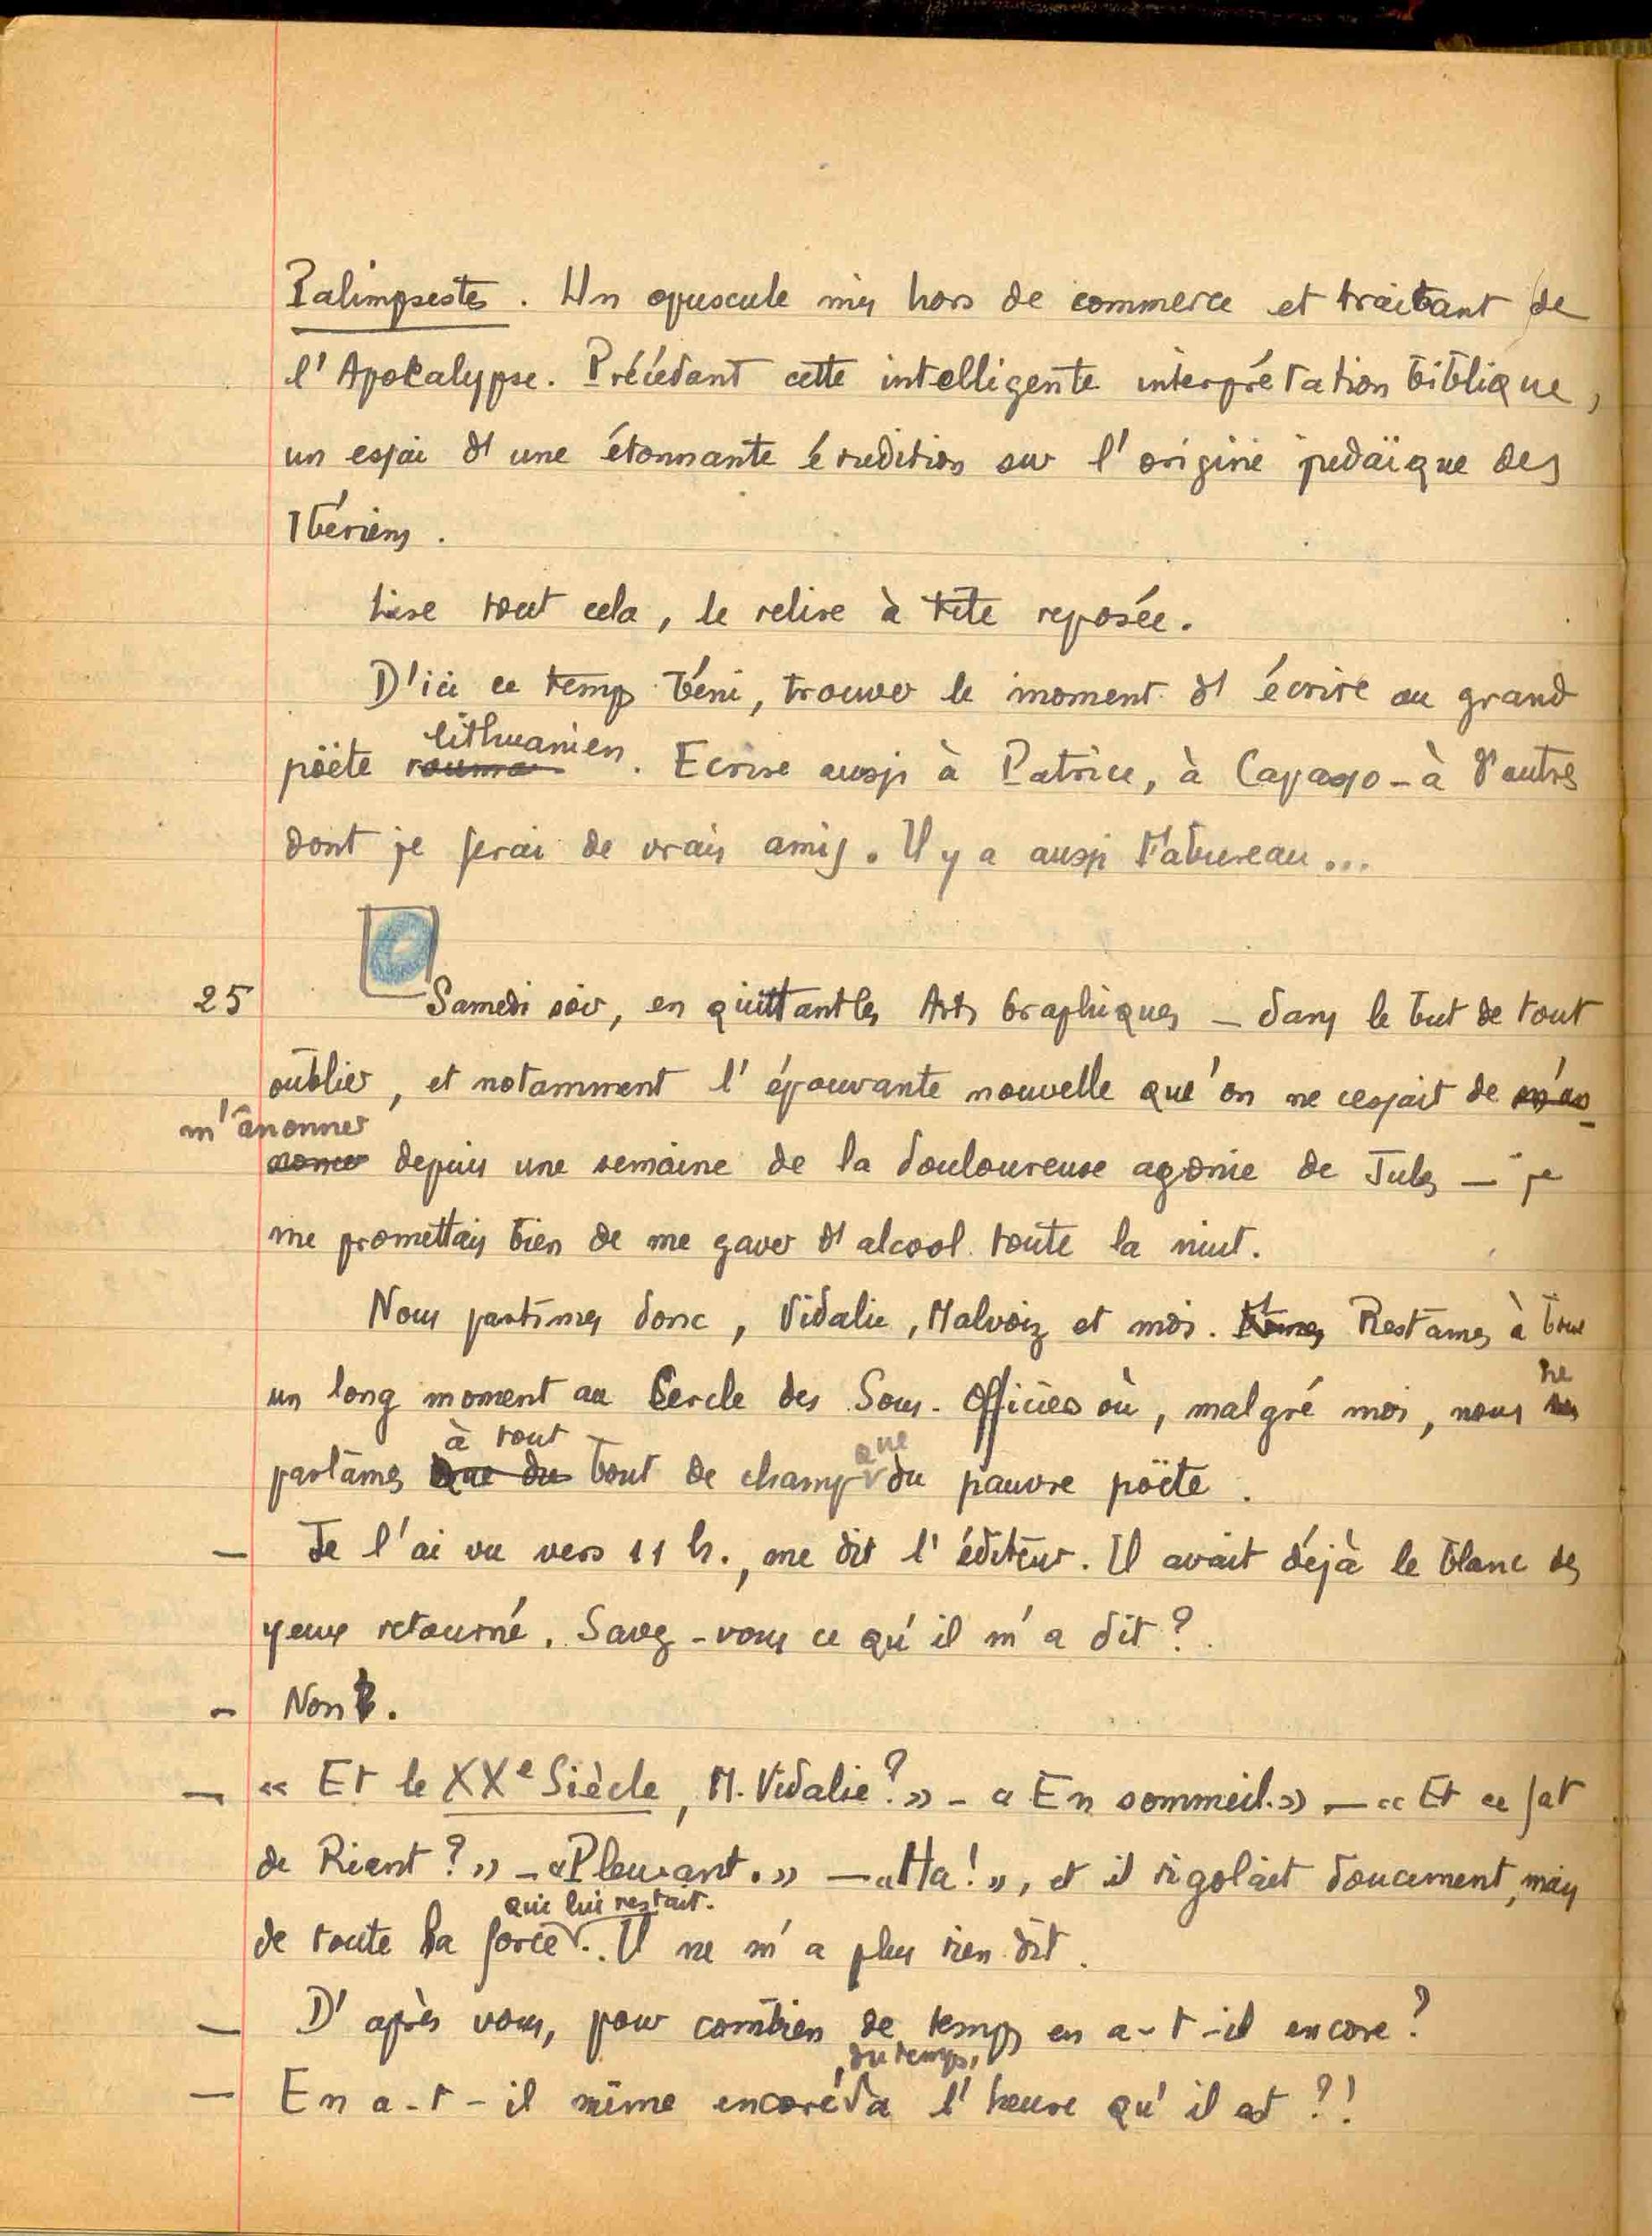 Palimpsestes. Un opuscule mis hors de commerce et traitant de
l'Apocalypse. Précédant cette intelligente interprétation biblique,
un essai d'une étonnante érudition sur l'origine judaïque des
Ibériens.
Lire tout cela, le relire à tête reposée.
D'ici ce temps béni, trouver le moment d'écrire au grand
lithuanien
poëte rouma. Ecrire aussi à Patrice, à Capago - à d'autres
dont je ferai de vrais amis. Il y a aussi Mabureau...
25 Samedi soir, en quittant les Arts Graphiques — dans le but de tout
oublier, et notamment l'épouvante nouvelle que l'on ne cessait de m'an-
m'ânonner
noncer depuis une semaine de la douloureuse agonie de Jules — je
me promettais bien de me gaver d'alcool toute la nuit.
Nous partîmes donc, Vidalie, Malvoiz et moi. Restames à boire
un long moment au Cercle des Sous-Officiers où, malgré moi, nous ne
à tout que
parlâmes que du bout de champ du pauvre poëte.
— Je l'ai vu vers 11 h., me dit l'éditeur. Il avait déjà le blanc des
yeux retourné. Savez-vous ce qu'il m'a dit ?
— Non.
— « Et le XXe Siècle, M. Vidalie ? » - « En sommeil. » — « Et ce fat
de Rient ? » — « Pleurant. » — « Ha ! », et il rigolait doucement, mais
qui lui restait.
de toute la force. Il ne m'a plus rien dit.
— D'après vous, pour combien de temps en a-t-il encore ?
, du temps,
— En a-t-il même encore à l'heure qu'il est ?!